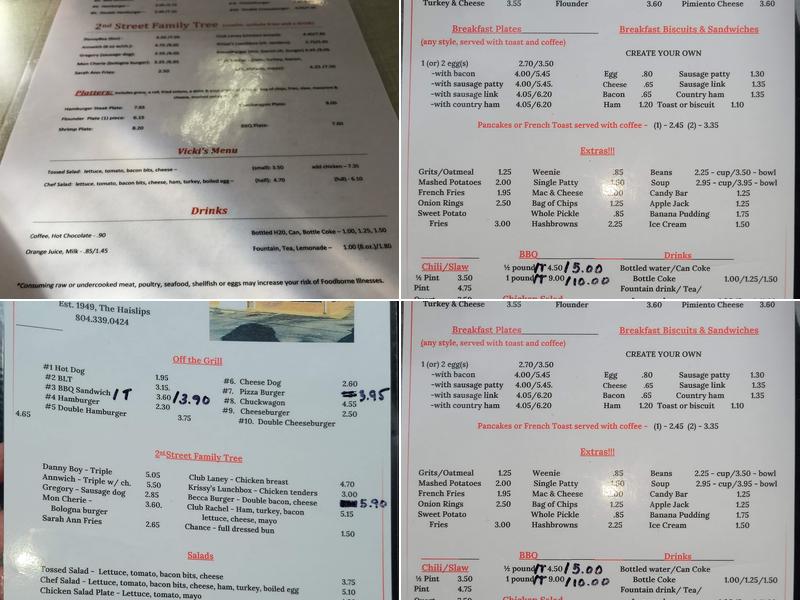 2nd Street Family Tree
Sarah Ann Fries: 2.50
Platters:
Hamburger Steak Plate: 7.85
Flounder Plate (1) piece: 6.15
Shrimp Plate: 8.20
BBQ Plate: 7.60
Vicki's Menu
Tossed Salad: lettuce, tomato, bacon bits, cheese – (small): 3.50 add chicken – 7.35
Chef Salad: lettuce, tomato, bacon bits, cheese, ham, turkey, boiled egg – (half): 4.70 (full) - 6.10
Drinks
Coffee, Hot Chocolate - .90 Bottled H20, Can, Bottle Coke – 1.00, 1.25, 1.50
Orange Juice, Milk - .85/1.45 Fountain, Tea, Lemonade – 1.00 (8 oz.)/1.80
*Consuming raw or undercooked meat, poultry, seafood, shellfish or eggs may increase your risk of Foodborne Illnesses.
Turkey & Cheese 3.55 Flounder 3.60 Pimiento Cheese 3.60
Breakfast Plates Breakfast Biscuits & Sandwiches
(any style, served with toast and coffee)
CREATE YOUR OWN
1 (or) 2 egg(s) 2.70/3.50
-with bacon 4.00/5.45 Egg .80 Sausage patty 1.30
-with sausage patty 4.00/5.45. Cheese .65 Sausage link 1.35
-with sausage link 4.05/6.20 Bacon .65 Country ham 1.35
-with country ham 4.05/6.20 Ham 1.20 Toast or biscuit 1.10
Pancakes or French Toast served with coffee - (1) - 2.45 (2) - 3.35
Extras!!!
Grits/Oatmeal 1.25 Weenie .85 Beans 2.25 - cup/3.50 - bowl
Mashed Potatoes 2.00 Single Patty 1.50 Soup 2.95 - cup/3.95 - bowl
French Fries 1.95 Mac & Cheese Candy Bar 1.25
Onion Rings 2.50 Bag of Chips 1.25 Apple Jack 1.25
Sweet Potato Whole Pickle .85 Banana Pudding 1.75
Fries 3.00 Hashbrowns 2.25 Ice Cream 1.50
BBQ Drinks
Chili/Slaw ½ pound/T 4.50/5.00 Bottled water/Can Coke
½ Pint 3.50 1 pound/T 9.00/10.00 Bottle Coke 1.00/1.25/1.50
Pint 4.75 Fountain drink/ Tea/
Est. 1949, The Haislips
804.339.0424
Off the Grill
#1 Hot Dog 1.95 #6. Cheese Dog 2.60
#2 BLT 3.15. #7. Pizza Burger 3.95
#3 BBQ Sandwich/T 3.60/3.90 #8. Chuckwagon 4.55
#4 Hamburger 2.30 #9. Cheeseburger 2.50
#5 Double Hamburger 3.75 #10. Double Cheeseburger
4.65
2nd Street Family Tree
Danny Boy - Triple 5.05 Club Laney - Chicken breast 4.70
Annwich - Triple w/ ch. 5.50 Krissy's Lunchbox - Chicken tenders 3.00
Gregory - Sausage dog 2.85 Becca Burger - Double bacon, cheese 5.90
Mon Cherie - 3.60. Club Rachel - Ham, turkey, bacon 5.15
Bologna burger lettuce, cheese, mayo
Sarah Ann Fries 2.65 Chance - full dressed bun 1.50
Salads
Tossed Salad - Lettuce, tomato, bacon bits, cheese 3.75
Chef Salad - Lettuce, tomato, bacon bits, cheese, ham, turkey, boiled egg 5.10
Chicken Salad Plate - Lettuce, tomato, mayo
Turkey & Cheese 3.55 Flounder 3.60 Pimiento Cheese 3.60
Breakfast Plates Breakfast Biscuits & Sandwiches
(any style, served with toast and coffee)
CREATE YOUR OWN
1 (or) 2 egg(s) 2.70/3.50
-with bacon 4.00/5.45 Egg .80 Sausage patty 1.30
-with sausage patty 4.00/5.45. Cheese .65 Sausage link 1.35
-with sausage link 4.05/6.20 Bacon .65 Country ham 1.35
-with country ham 4.05/6.20 Ham 1.20 Toast or biscuit 1.10
Pancakes or French Toast served with coffee - (1) - 2.45 (2) - 3.35
Extras!!!
Grits/Oatmeal 1.25 Weenie .85 Beans 2.25 - cup/3.50 - bowl
Mashed Potatoes 2.00 Single Patty 1.50 Soup 2.95 - cup/3.95 - bowl
French Fries 1.95 Mac & Cheese Candy Bar 1.25
Onion Rings 2.50 Bag of Chips 1.25 Apple Jack 1.25
Sweet Potato Whole Pickle .85 Banana Pudding 1.75
Fries 3.00 Hashbrowns 2.25 Ice Cream 1.50
BBQ Drinks
Chili/Slaw ½ pound/T 4.50/5.00 Bottled water/Can Coke
½ Pint 3.50 1 pound/T 9.00/10.00 Bottle Coke 1.00/1.25/1.50
Pint 4.75 Fountain drink/ Tea/